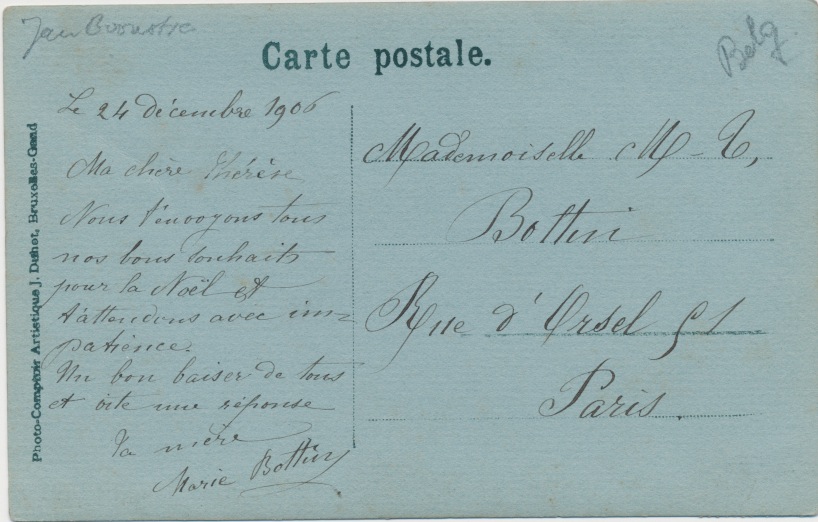 Carte postale.
Belg
Photo-Comptoir Artistique J. Duhot, Bruxelles-Gand
Le 24 décembre 1906
Ma chère Thérèse
Nous t'envoyons tous
nos bons souhaits
pour la Noël et
t'attendons avec im-
patience.
Un bon baiser de tous
et vite une réponse
Ta mère
Marie Bottin
Mademoiselle M-T,
Bottin
Rue d'Orsel 51
Paris.